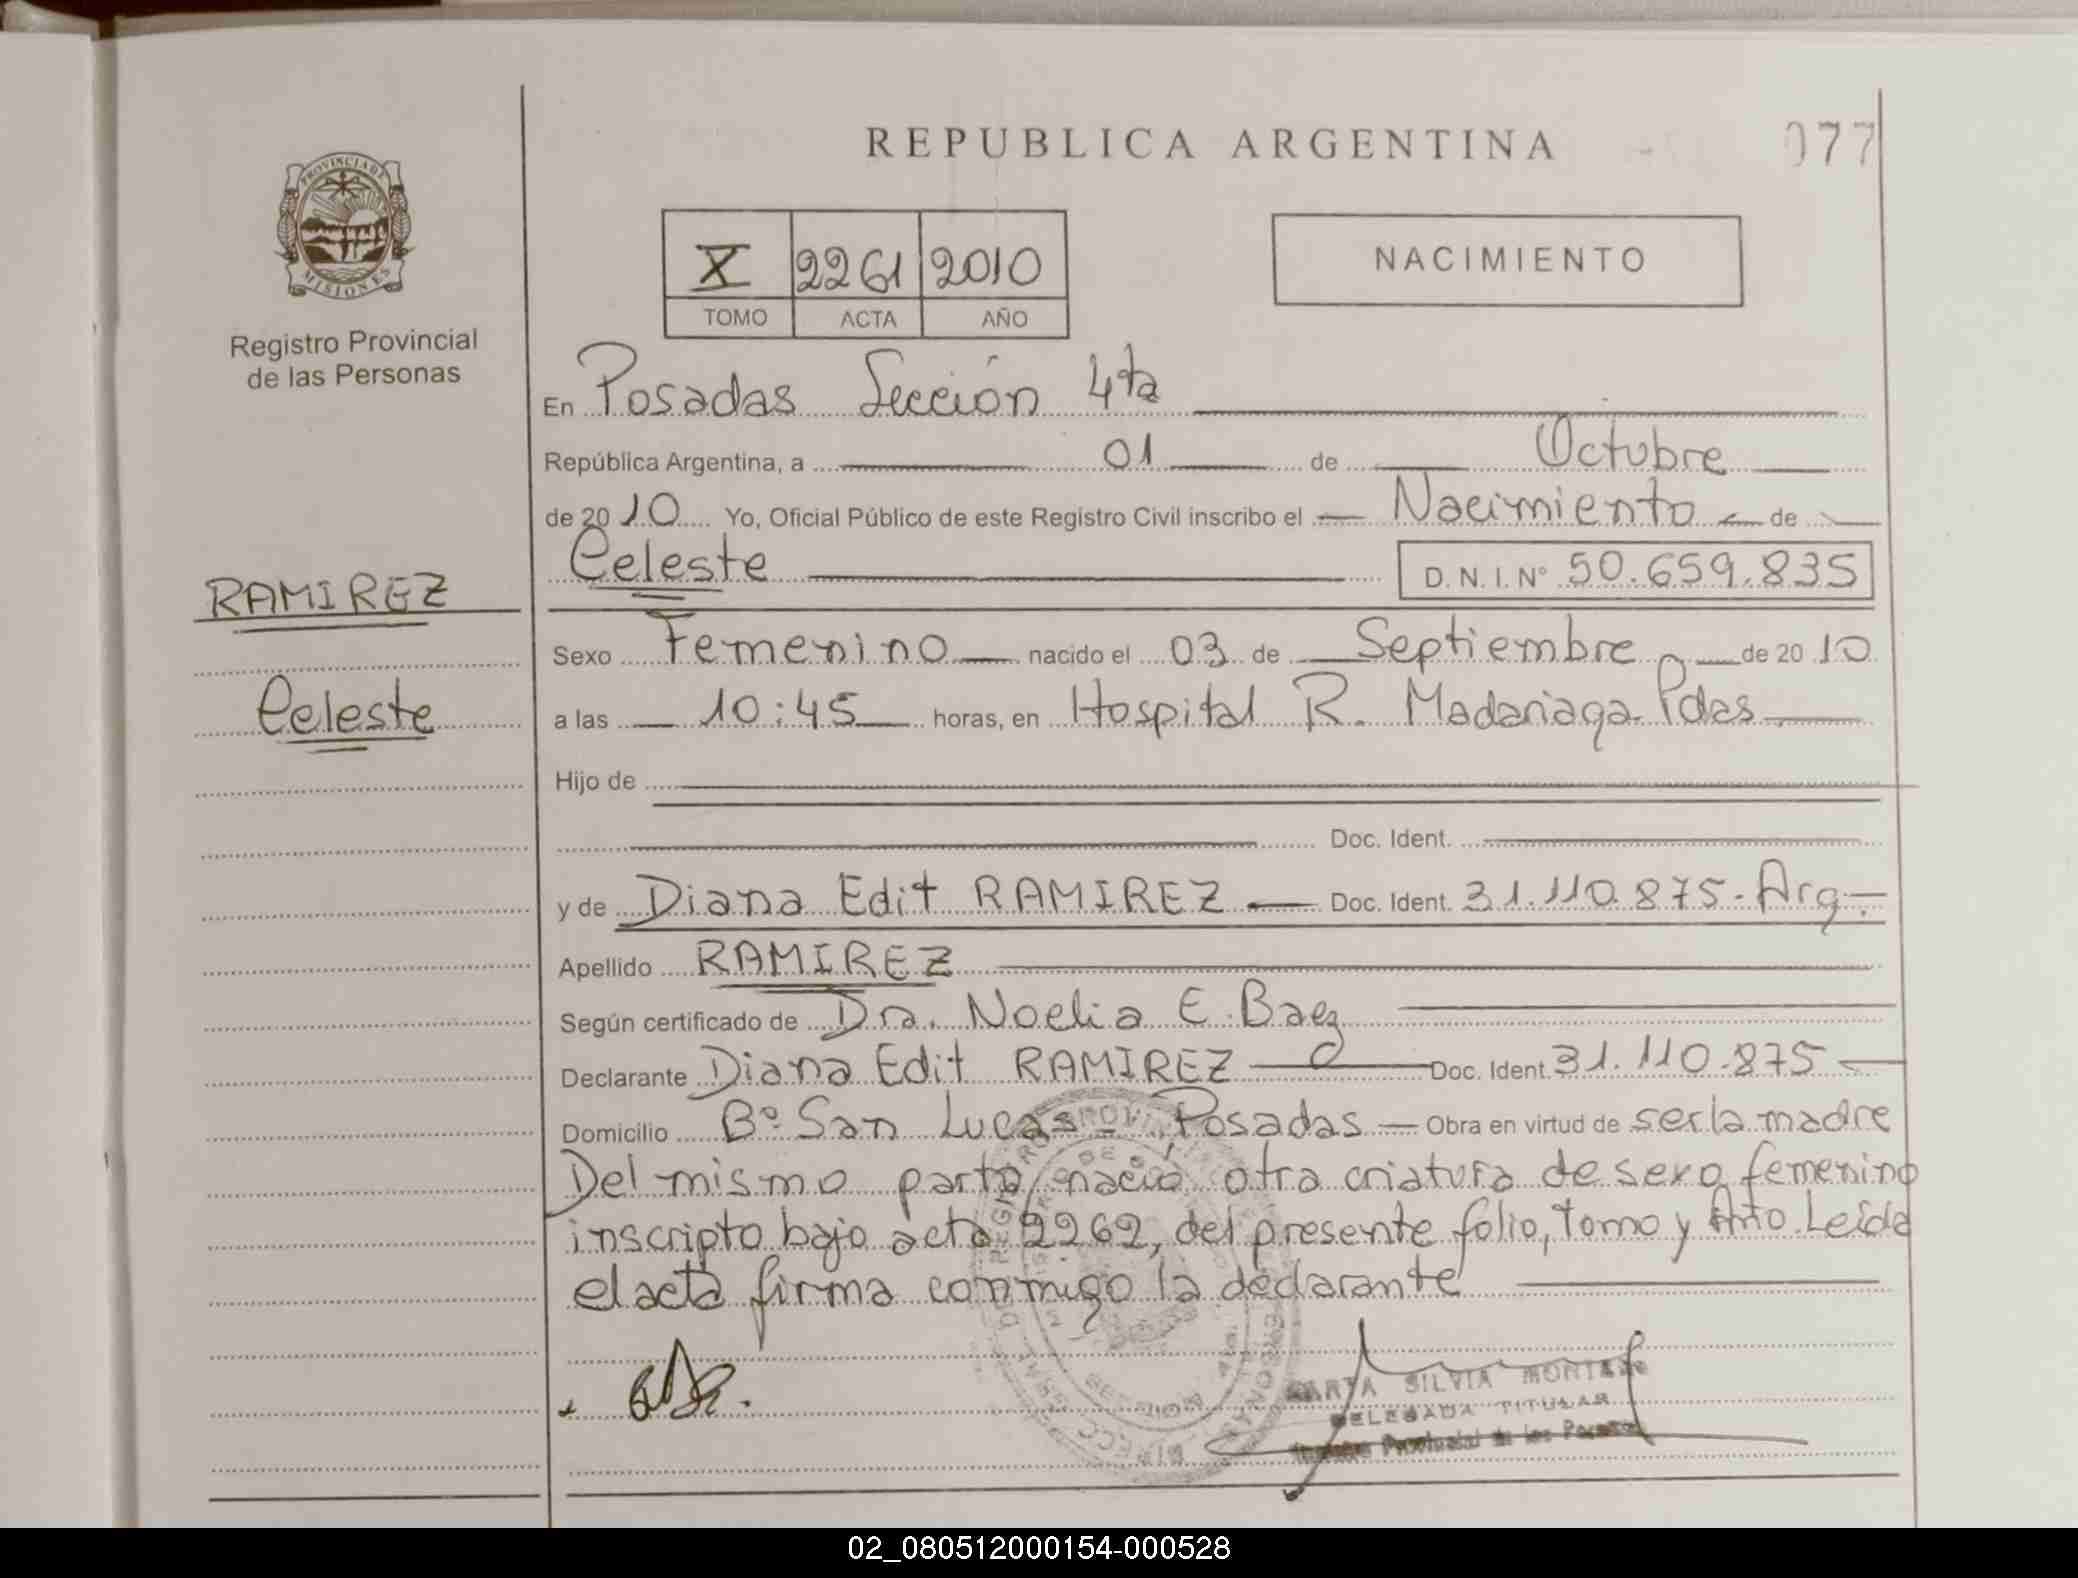 REPUBLICA ARGENTINA
077
PROVINCIA DE
MISIONES
Registro Provincial
de las Personas
X 2261 2010
TOMO ACTA AÑO
NACIMIENTO
En Posadas Sección 4ta
República Argentina, a 01 de Octubre
de 2010 Yo, Oficial Público de este Registro Civil inscribo el Nacimiento de
Celeste D.N.I.Nº 50.659.835
RAMIREZ
Celeste
Sexo Femenino nacido el 03 de Septiembre de 2010
a las 10:45 horas, en Hospital R. Madariaga Pdas
Hijo de
Doc. Ident.
y de Diana Edit RAMIREZ Doc. Ident. 31.110.875. Arg.
Apellido RAMIREZ
Según certificado de Dra. Noelia E. Baez
Declarante Diana Edit RAMIREZ Doc. Ident. 31.110.875
Domicilio Bº San Lucas - Posadas Obra en virtud de ser la madre
Del mismo parto nació otra criatura de sexo femenino
inscripto bajo acta 2262, del presente folio, tomo y Leída
el acta firma conmigo la declarante
SILVIA
DELEGADA TITULAR
Provincial de las
02_080512000154-000528